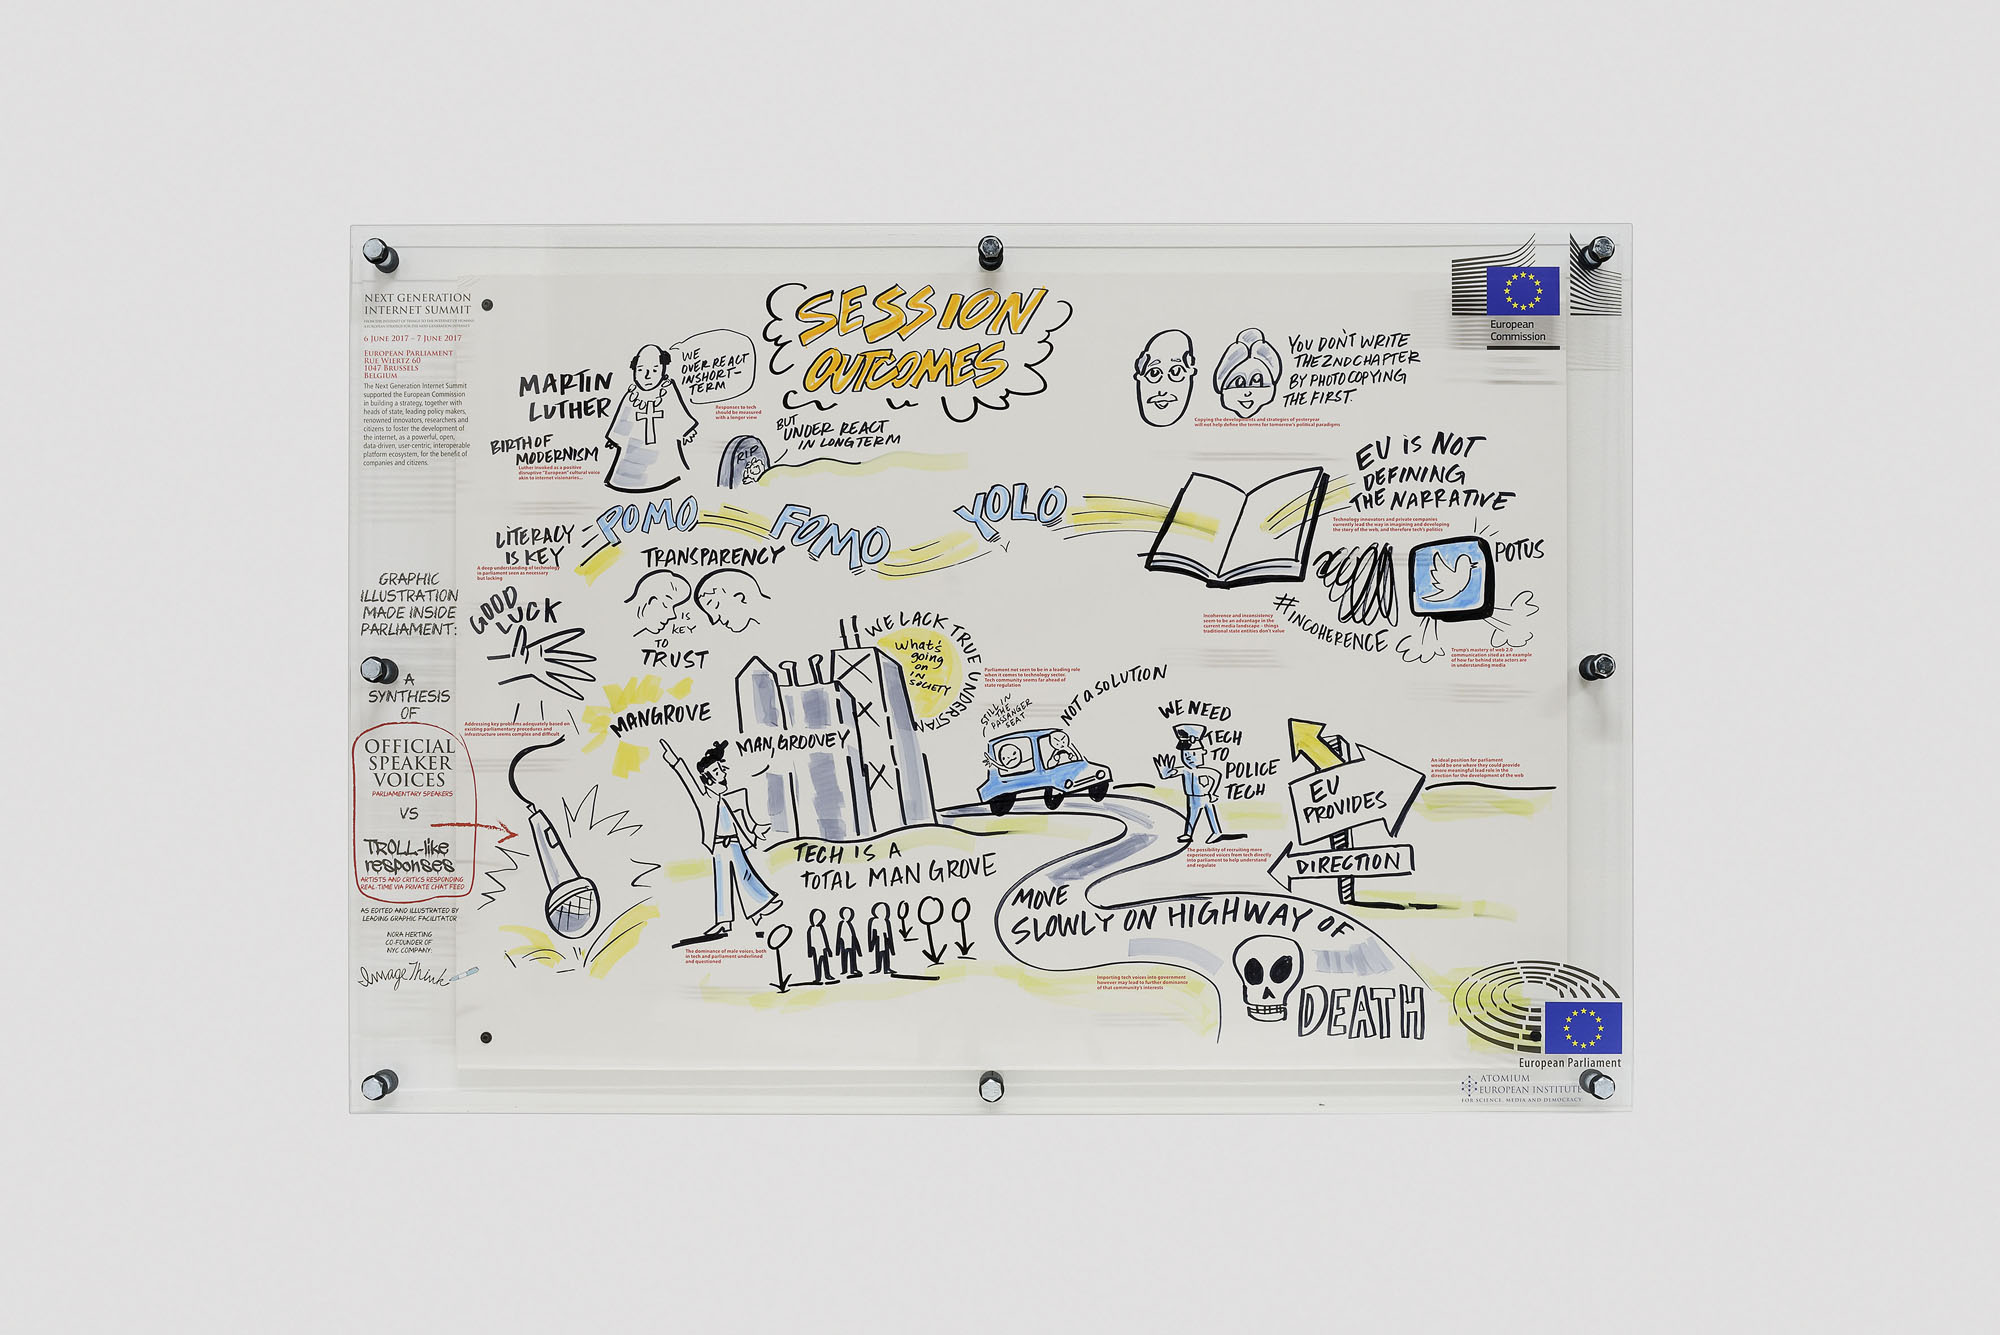 NEXT GENERATION
INTERNET SUMMIT
6 JUNE 2017 – 7 JUNE 2017
EUROPEAN PARLIAMENT
RUE WIERTZ 60
1047 BRUSSELS
BELGIUM
The Next Generation Internet Summit
supported the European Commission
in building a strategy, together with
heads of state, leading policy makers,
renowned innovators, researchers and
citizens to foster the development of
the internet, as a powerful, open,
data-driven, user-centric, interoperable
platform ecosystem, for the benefit of
companies and citizens.
GRAPHIC
ILLUSTRATION
MADE INSIDE
PARLIAMENT:
A
SYNTHESIS
OF
OFFICIAL
SPEAKER
VOICES
PARLIAMENTARY SPEAKERS
VS
TROLL-like
responses
ARTISTS AND CRITICS RESPONDING
REAL-TIME VIA PRIVATE CHAT FEED
AS EDITED AND ILLUSTRATED BY
LEADING GRAPHIC FACILITATOR
NORA HERTING
CO-FOUNDER OF
NYC COMPANY:
ImageThink
SESSION
OUTCOMES
MARTIN
LUTHER
BIRTH OF
MODERNISM
Luther invoked as a positive
disruptive "European" cultural voice
akin to internet visionaries...
WE
OVER REACT
IN SHORT-
TERM
Responses to tech
should be measured
with a longer view
RIP
BUT
UNDER REACT
IN LONG TERM
YOU DON'T WRITE
THE 2ND CHAPTER
BY PHOTOCOPYING
THE FIRST.
Copying the developments and strategies of yesteryear
will not help define the terms for tomorrow's political paradigms
European
Commission
EU IS NOT
DEFINING
THE NARRATIVE
Technology innovators and private companies
currently lead the way in imagining and developing
the story of the web, and therefore tech's politics
POMO
FOMO
YOLO
LITERACY
IS KEY
A deep understanding of technology
in parliament seen as necessary
but lacking
TRANSPARENCY
IS
KEY
TO
TRUST
GOOD
LUCK
Addressing key problems adequately based on
existing parliamentary procedures and
infrastructure seems complex and difficult
POTUS
#INCOHERENCE
Incoherence and inconsistency
seem to be an advantage in the
current media landscape – things
traditional state entities don't value
Trump's mastery of web 2.0
communication sited as an example
of how far behind state actors are
in understanding media
WE LACK TRUE UNDERSTAN
What's
going
on
IN
SOCIETY
Parliament not seen to be in a leading role
when it comes to technology sector.
Tech community seems far ahead of
state regulation
STILL IN
THE
PASSANGER
SEAT
NOT A SOLUTION
MANGROVE
MAN, GROOVEY
TECH IS A
TOTAL MAN GROVE
The dominance of male voices, both
in tech and parliament underlined
and questioned
WE NEED
TECH
TO
POLICE
TECH
The possibility of recruiting more
experienced voices from tech directly
into parliament to help understand
and regulate
EU
PROVIDES
DIRECTION
An ideal position for parliament
would be one where they could provide
a more meaningful lead role in the
direction for the development of the web
MOVE
SLOWLY ON HIGHWAY OF
DEATH
Importing tech voices into government
however may lead to further dominance
of that community's interests
European Parliament
ATOMIUM
EUROPEAN INSTITUTE
FOR SCIENCE, MEDIA AND DEMOCRACY